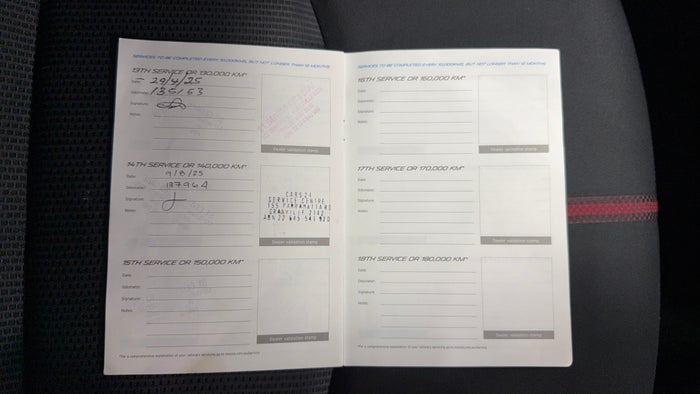 SERVICES TO BE COMPLETED EVERY 10,000KMS, BUT NOT LONGER THAN 12 MONTHS
13TH SERVICE OR 130,000 KM*
Date: 29/4/25
Odometer: 135153
Signature:
Notes:
Dealer validation stamp
14TH SERVICE OR 140,000 KM*
Date: 9/8/25
Odometer: 137964
Signature:
Notes:
CARS24
SERVICE CENTRE
GRANVILLE 2142
Dealer validation stamp
15TH SERVICE OR 150,000 KM*
Date:
Odometer:
Signature:
Notes:
Dealer validation stamp
SERVICES TO BE COMPLETED EVERY 10,000KMS, BUT NOT LONGER THAN 12 MONTHS
16TH SERVICE OR 160,000 KM*
Date:
Odometer:
Signature:
Notes:
Dealer validation stamp
17TH SERVICE OR 170,000 KM*
Date:
Odometer:
Signature:
Notes:
Dealer validation stamp
18TH SERVICE OR 180,000 KM*
Date:
Odometer:
Signature:
Notes:
Dealer validation stamp